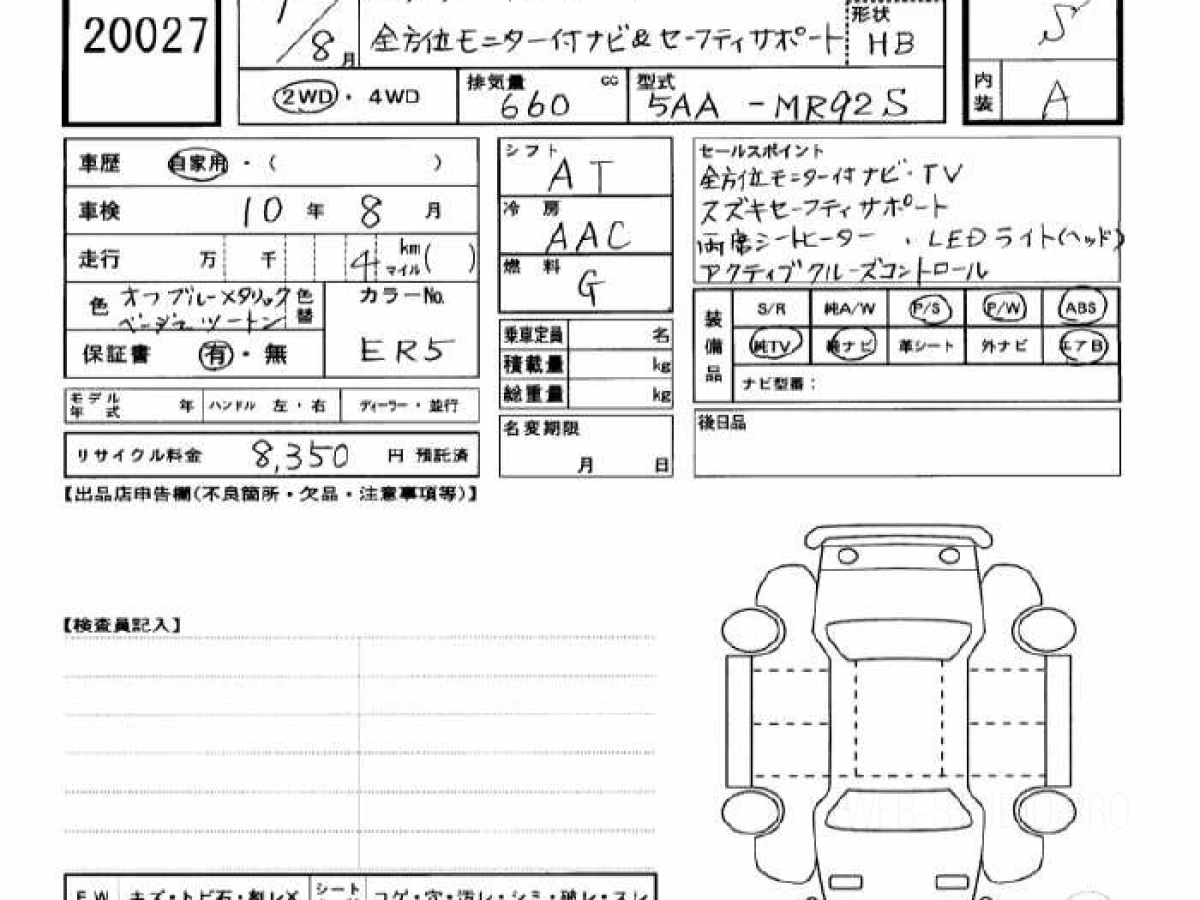 20027
8月
全方位モニター付ナビ&セーフティサポート
形状
HB
S
2WD・4WD
排気量 cc
660
型式
5AA-MR92S
内装
A
車歴 自家用・( )
車検 10年 8月
走行 万 千 4 km マイル ( )
色 オフブルーメタリック
ベージュ ツートン
色替
カラーNo.
ER5
保証書 有・無
モデル年式 年 ハンドル 左・右 ディーラー・並行
リサイクル料金 8,350 円 預託済
シフト
AT
冷房
AAC
燃料
G
乗車定員 名
積載量 kg
総重量 kg
名変期限
月 日
セールスポイント
全方位モニター付ナビ・TV
スズキセーフティサポート
両席シートヒーター・LEDライト(ヘッド)
アクティブクルーズコントロール
装備品
S/R 純A/W P/S P/W ABS
純TV 純ナビ 革シート 外ナビ エアB
ナビ型番:
後日品
【出品店申告欄(不良箇所・欠品・注意事項等)】
【検査員記入】
FW キズ・トビ石・割レX シート コゲ・穴・汚レ・シミ・破レ・スレ